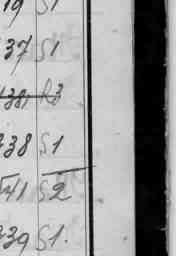 19 S1
37 S1
38 R3
38 S1
41 S2
39 S1.